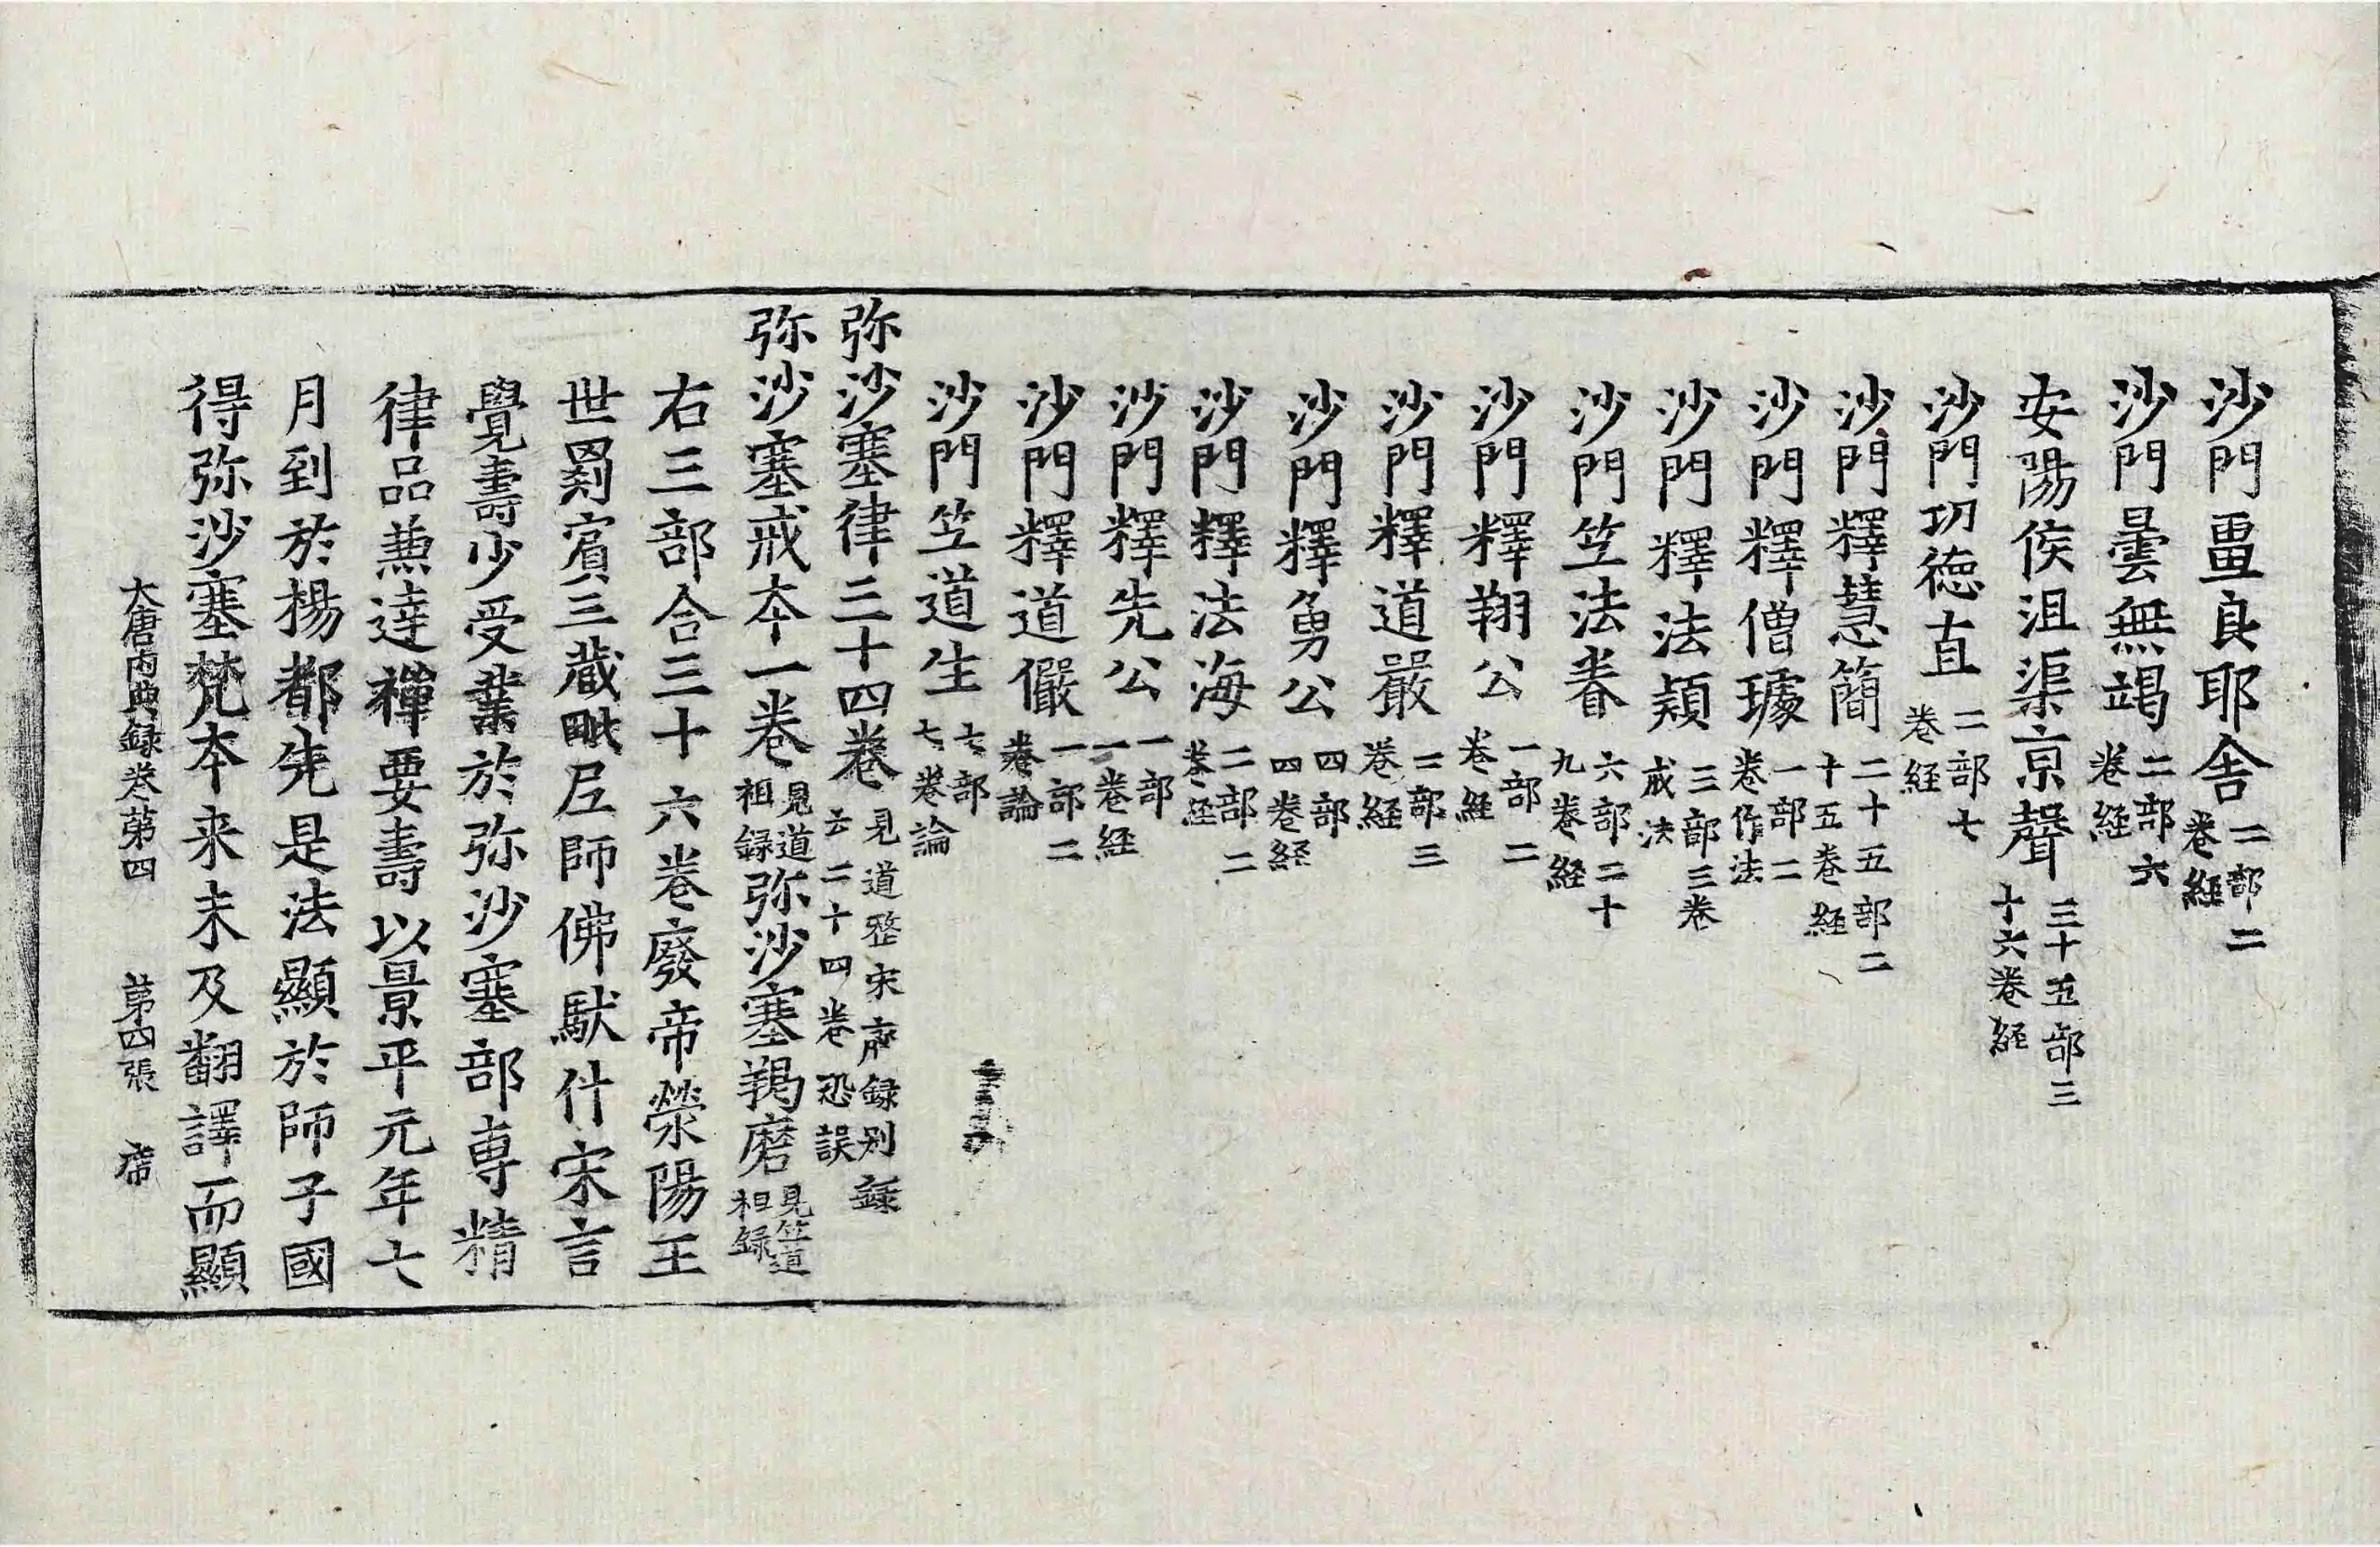 沙門畺良耶舍二部二卷経
沙門曇無竭二部六卷経
安陽侯沮渠京聲三十五部三十六卷経
沙門功徳直二部七卷経
沙門釋慧簡二十五部二十五卷経
沙門釋僧璩一部二卷作法
沙門釋法頴三部三卷戒法
沙門竺法眷六部二十九卷経
沙門釋翔公一部二卷経
沙門釋道嚴二部三卷経
沙門釋勇公四部四卷経
沙門釋法海二部二卷経
沙門釋先公一部一卷経
沙門釋道儼一部二卷論
沙門竺道生七部七卷論
弥沙塞律三十四卷見道整宋齊録别録云二十四卷恐誤
弥沙塞戒夲一卷見道祖録弥沙塞羯磨見竺道祖録
右三部合三十六卷廢帝滎陽王
世罽賓三蔵毗尼師佛馱什宋言
覺壽少受業於弥沙塞部専精
律品兼達禪要壽以景平元年七
月到於揚都先是法顯於師子國
得弥沙塞梵夲来未及翻譯而顯
大唐内典録卷苐四　苐四張　席